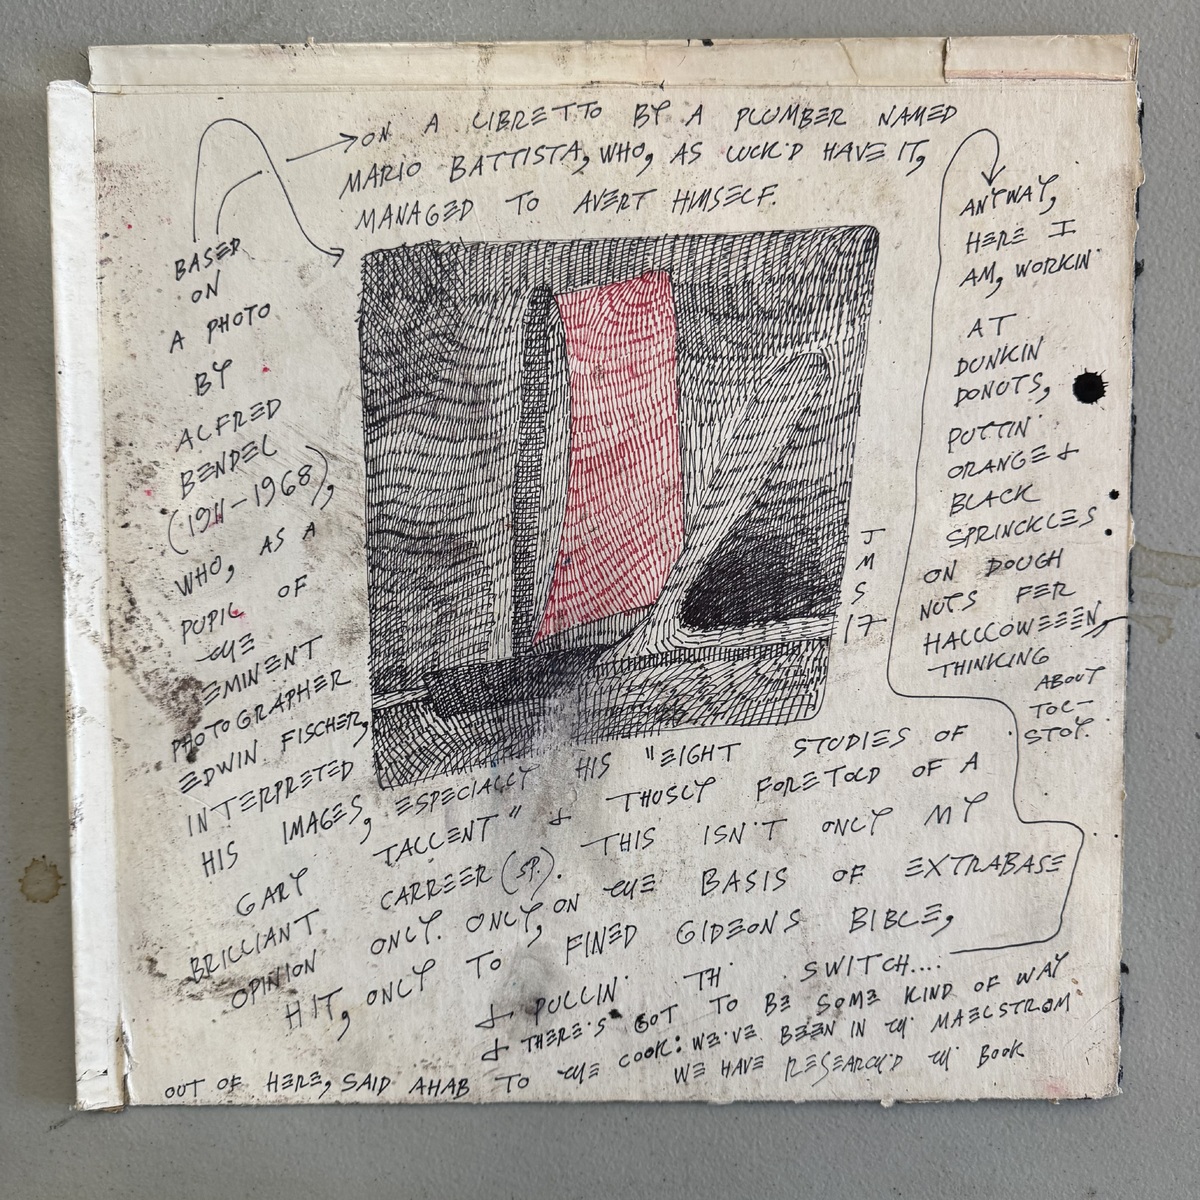 BASED
ON
A PHOTO
BY
ALFRED
BENDEL
(1911-1968),
WHO, AS A
PUPIL OF
THE
EMINENT
PHOTOGRAPHER
EDWIN FISCHER,
INTERPRETED
HIS IMAGES, ESPECIALLY HIS "EIGHT STUDIES OF
GARY TALLENT" & THUSLY FORETOLD OF A
BRILLIANT CARREER (SP.). THIS ISN'T ONLY MY
OPINION ONLY. ONLY, ON THE BASIS OF EXTRABASE
HIT, ONLY TO FINED GIDEONS BIBLE,
& PULLIN' TH' SWITCH....
→ON A LIBRETTO BY A PLUMBER NAMED
MARIO BATTISTA, WHO, AS LUCK'D HAVE IT,
MANAGED TO AVERT HIMSELF.
ANYWAY,
HERE I
AM, WORKIN'
AT
DUNKIN
DONUTS,
PUTTIN'
ORANGE &
BLACK
SPRINCKLES
ON DOUGH
NUTS FER
HALLLOWEEEN,
THINKING
ABOUT
TOL-
STOY.
& THERE'S GOT TO BE SOME KIND OF WAY
OUT OF HERE, SAID AHAB TO THE COOK: WE'VE BEEN IN TH' MAELSTROM
WE HAVE RESEARCH'D TH' BOOK
J
M
S
17